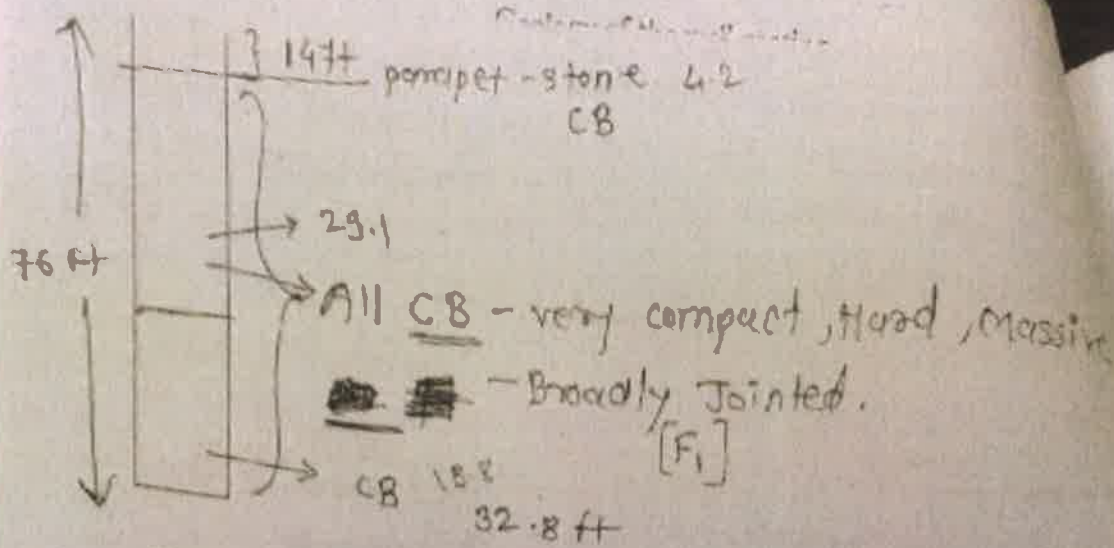 147t
pomipet - stone 4.2
CB
29.1
76 ft
All CB - very compact, Hard, Massive
- Broadly Jointed.
[F1]
CB 18.8
32.8 ft